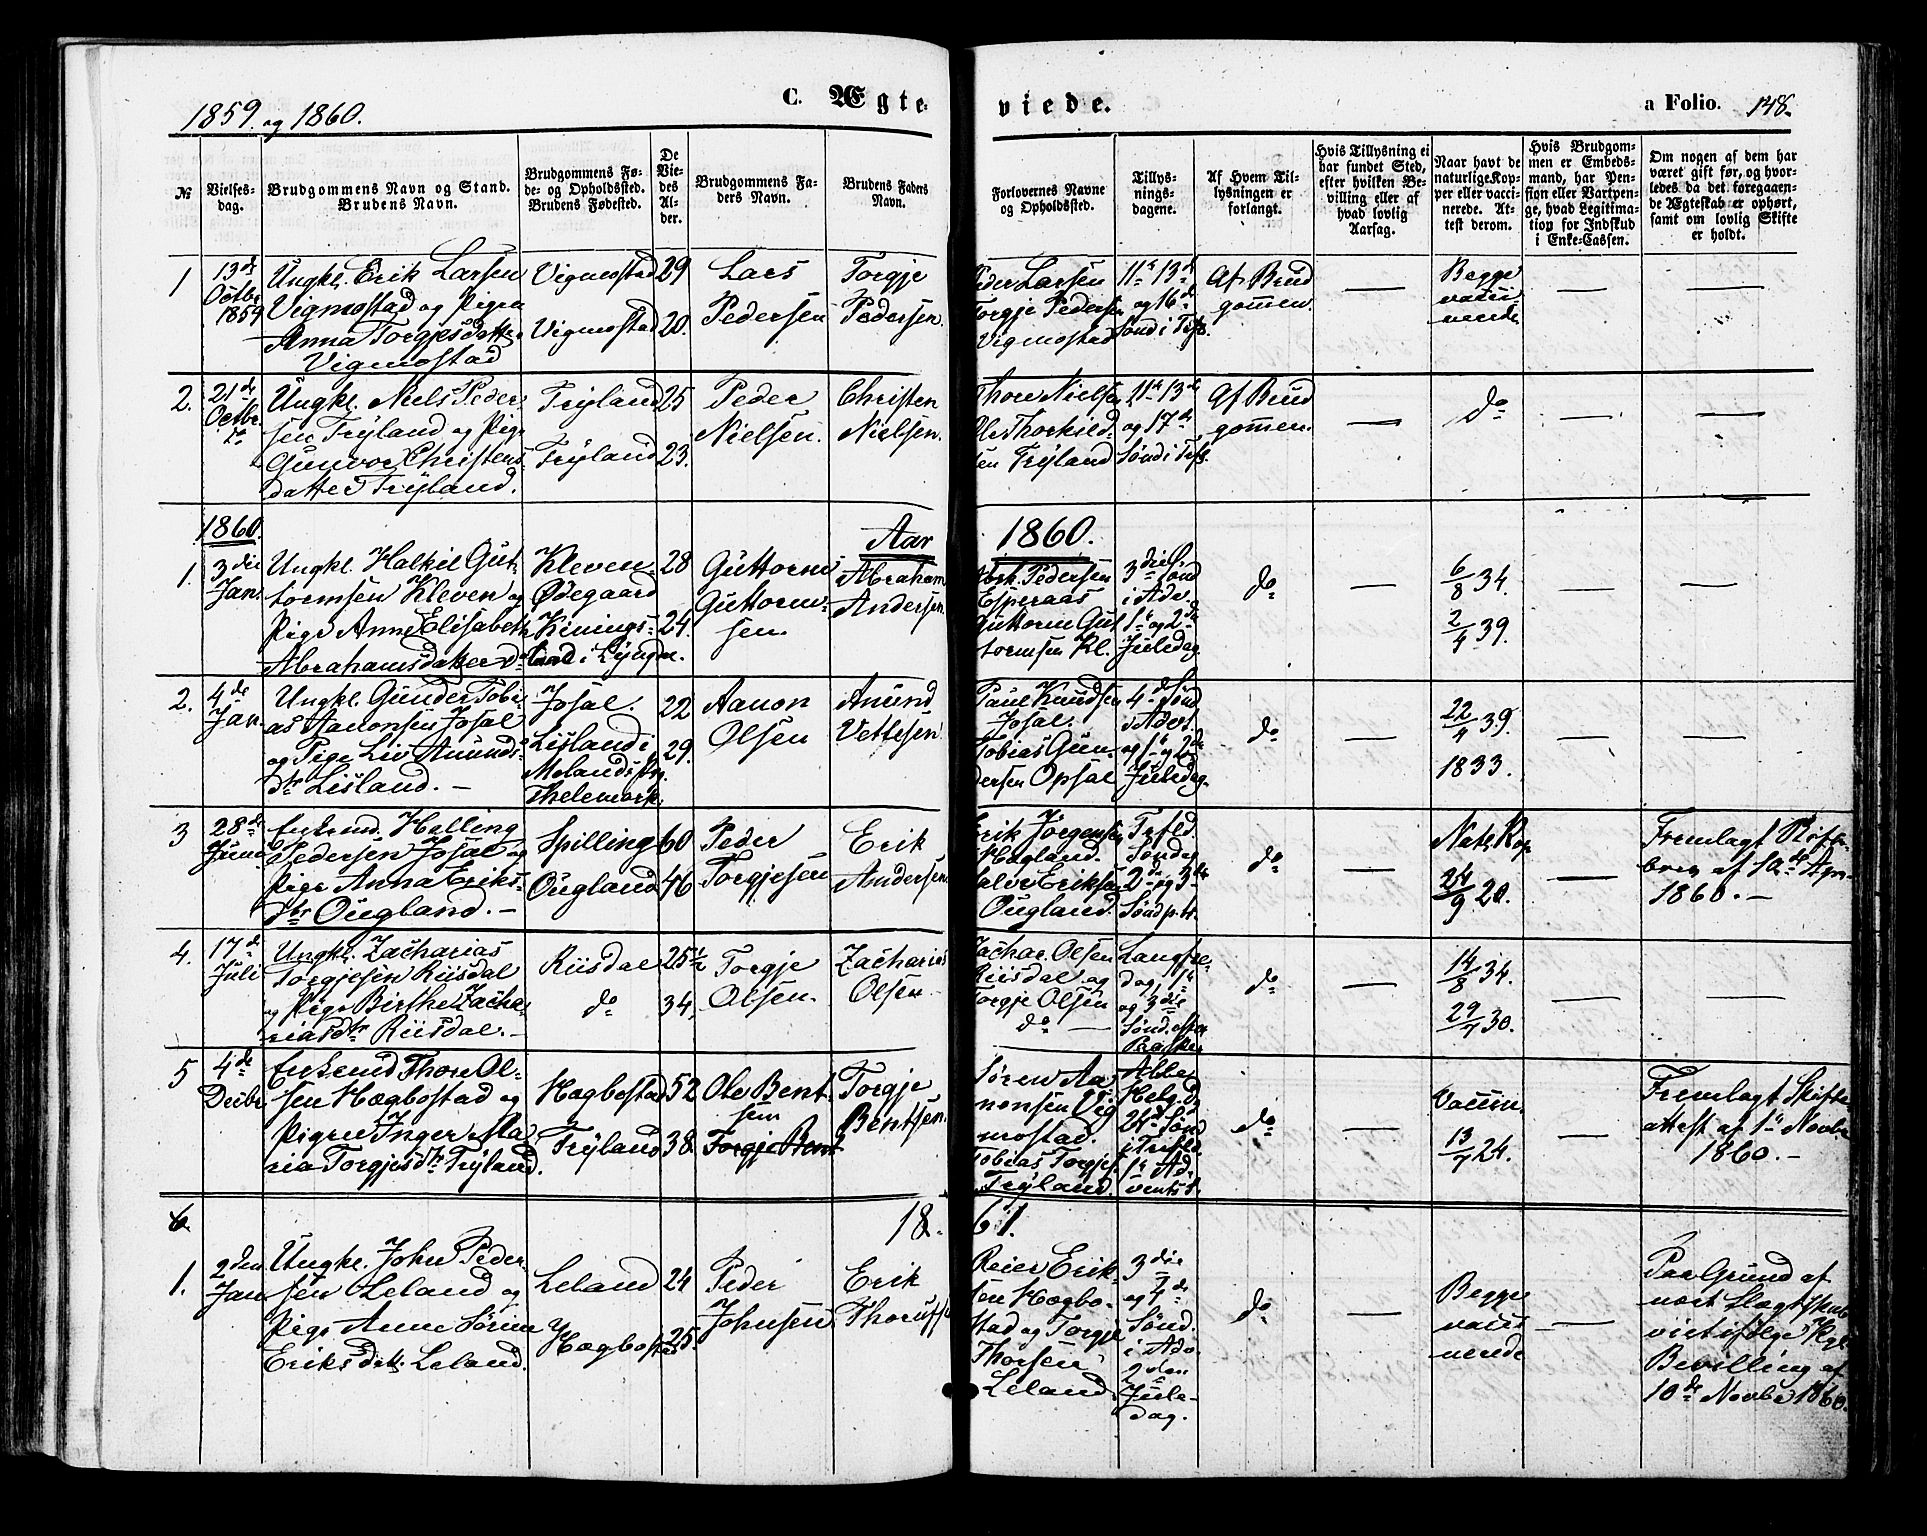 1859. og 1860.
C. Ægte
viede.
a Folio. 148.
№
Vielses-
dag.
Brudgommens Navn og Stand.
Brudens Navn.
Brudgommens Fø-
de- og Opholdssted.
Brudens Fødested.
De
Vie-
des
Al-
der.
Brudgommens Fa-
ders Navn.
Brudens Faders
Navn.
Forlovernes Navne
og Opholdssted.
Tillys-
nings-
dagene.
Af Hvem Til-
lysningen er
forlangt.
Hvis Tillysning ei
har fundet Sted,
efter hvilken Be-
villing eller af
hvad lovlig
Aarsag.
Naar havt de
naturlige Kop-
per eller vacci-
nerede. At-
test derom.
Hvis Brudgom-
men er Embeds-
mand, har Pen-
sion eller Vartpen-
ge, hvad Legitima-
tion for Indskud
i Enke-Cassen.
Om nogen af dem har
været gift før, og hvor-
ledes da det foregaaen-
de Ægteskab er ophørt,
samt om lovlig Skifte
er holdt.
1
13de
Octbr
1859
Ungkl. Erik Larsen
Vigmostad og Pigen
Anna Torgjesdatter
Vigmostad
Vigmostad
Vigmostad
29
20.
Lars
Pedersen
Torgje
Pedersen.
Peder Larsen
Torgje Pedersen
Vigmostad
11te 13de
og 16de
Sønd i Trf.
Af Brud
gommen.
Begge
vacci
nerede
2.
21de
Octbr
Ungkl. Niels Peder
sen Trÿland og Pige
Gunvor Christens
datter Trÿland.
Trÿland
Trÿland
25
23.
Peder
Nielsen.
Christen
Nielsen.
Thore Nielsen
Ole Thorkild
sen Trÿland
11te 13de
og 17de
Sønd i Trf.
Af Brud
gommen.
do
1860.
Aar
1860.
1.
3die
Jan.
Ungkl. Halkil Gut-
tormsen Kleven og
Pige Anne Elisabeth
Abrahamsdatter do
Kleven
Ødegaard
Kinings-
land i Lÿngdal.
28
24.
Guttorm
Guttorm-
sen.
Abraham
Andersen.
Abrh. Pedersen
Esperaas
Guttorm Gut
tormsen Kl.
3die Sønd
i Adv.
1te og 2den
Juledag.
do
6/8 34.
2/4 39.
2.
4de
Jan.
Ungkl. Gunder Tobi-
as Aanonsen Josal
og Pige Liv Aanunds-
dtr Lisland.
Josal.
Lisland i
Molands Prg.
Thelemark.
22
29.
Aanon
Olsen
Anund
Vettesen
Paul Knudsen
Josal.
Tobias Gun-
dersen Opsal
4de Sønd
i Advt.
og 1te og 2den
Juledag.
do
22/4 39.
1833.
3
28de
Juni
Enkemd. Helling
Pedersen Josal og
Pige Anna Eriks-
dtr Ougland.
Spilling
Ougland
60
46
Peder
Torgjesen
Erik
Andersen
Erik Jörgensen
Hægland.
Salve Eriksen
Ougland.
Trfld.
Sondag
2de og 3die
Sønd p. tr.
do
Natl. Kop.
24/9 20.
Fremlagt Skifte-
brev af 10de Apr.
1860.
4.
17de
Juli
Ungkl. Zacharias
Torgjesen Riisdal
og Pige Birthe Zacha-
riasdtr Riisdal.
Riisdal
do
25 1/2
34,
Torgje
Olsen.
Zacharias
Olsen
Zachar. Olsen
Riisdal og
Torgje Olsen
do
Langfre-
dag, 1te
og 3die
Sønd. efter
Paaske
do
14/8 34.
29/7 30.
5
4de
Decbr
Enkemd Thore Ol-
sen Hægbostad og
Pigen Inger Ma
ria Torgjesdtr Trÿland.
Hægbostad
Trÿland
52
38.
Ole Bent
sen
Torgje Bent
Torgje
Bentsen.
Sören Aa
nonsen Vig
mostad.
Tobias Torgjes.
Trÿland.
Alle
Helg. D.
24de Sønd
i Trefld.
1te Ad-
vents S.
do
Vaccin.
13/7 24.
Fremlagt Skifte
attest af 1te Novbr
1860.
6
18.
61.
1.
2den
Jan
Ungkl. John Peder-
sen Leland og
Pige Anne Sörine
Eriksdatt. Leland.
Leland
Hægbostad
24
25.
Peder
Johnsen
Erik
Reier Erik-
sen Hægbo-
stad og Torgje
Thorsen
Leland
3die
og 4de
Sønd.
i Adv.
2den
Jule-
dag.
do
Begge
vacci
nerede
Paa Grund af
nært Slægtskab
viet ifölge Kgl.
Bevilling af
10de Novbr 1860.